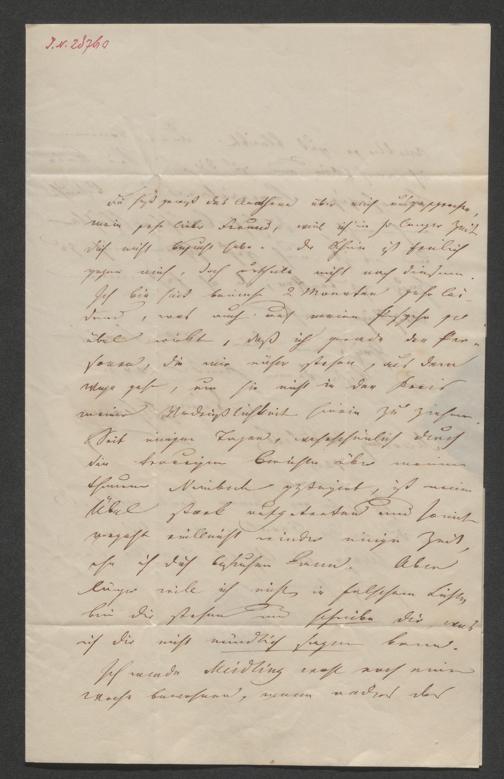 I.N. 28760
Du hast gewiß das Anathema über mich ausgesprochen,
mein sehr lieber Freund, weil ich in so langer Zeit
Dich nicht besucht habe. Der Schein ist freilich
gegen mich, doch urtheile nicht nach diesem.
Ich bin seit beinahe 2 Monaten sehr lei-
dend, was auch auf meine Psyche so
übel wirkt, daß ich gerade den Per-
sonen, die mir näher stehen, aus dem
Wege gehe, um sie nicht in den Kreis
meiner Verdrießlichkeit hinein zu ziehen.
Seit einigen Tagen, wahrscheinlich durch
die traurigen Berichte über meinen
theuren, ist mein
Übel stark aufgetreten und somit
vergeht vielleicht wieder einige Zeit,
ehe ich Dich besuchen kann. Aber
länger will ich nicht in falschem Lichte
bei Dir stehen und schreibe Dir was
ich Dir nicht mündlich sagen kann.
Ich werde Meidling wohl noch eine
Woche bewohnen, wenn anders das